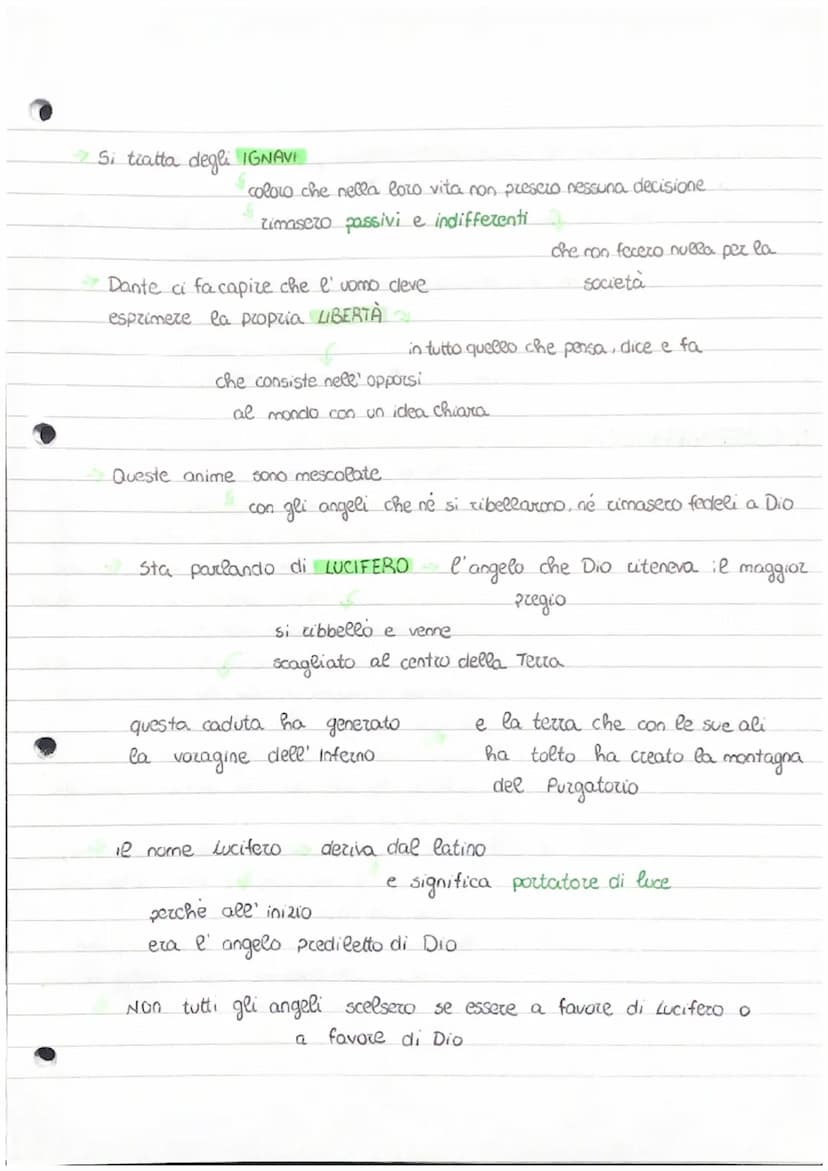 Si tratta degli IGNAVI
coloro che nella loro vita non presero nessuna decisione
rimasero passivi e indifferenti
che non fecero nulla per la
società
Dante ci fa capire che l'uomo deve
esprimere la propria LIBERTÀ
in tutto quello che pensa, dice e fa
che consiste nell'opporsi
al mondo con un idea chiara
Queste anime sono mescolate
con gli angeli che né si ribellarono, né rimasero fedeli a Dio
Sta parlando di LUCIFERO l'angelo che Dio riteneva il maggior
pregio
si ribbellò e venne
scagliato al centro della Terra
questa caduta ha generato
la voragine dell'Inferno
e la terra che con le sue ali
ha tolto ha creato la montagna
del Purgatorio
il nome Lucifero deriva dal latino
e significa portatore di luce
perchè all'inizio
era l'angelo prediletto di Dio
Non tutti gli angeli scelsero se essere a favore di Lucifero o
a favore di Dio